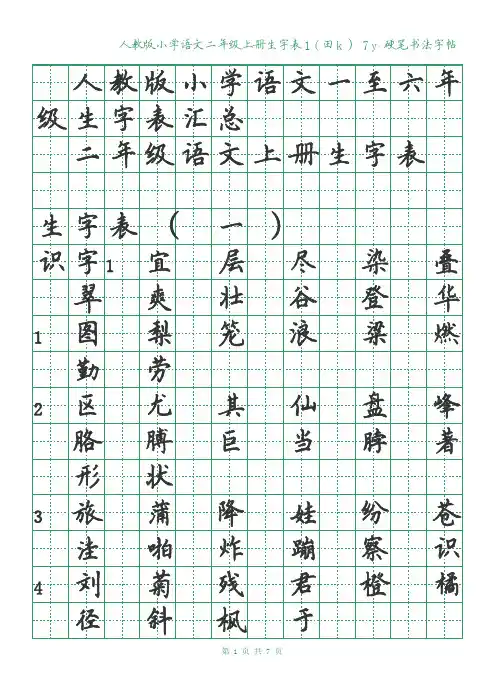 人教版小学语文二年级上册生字表1(田k) 7y 硬笔书法字帖
人教版小学语文一至六年
级生字表汇总
二年级语文上册生字表
生字表(一)
识字1 宜 层 尽 染 叠
翠 爽 壮 谷 登 华
1 图 梨 笼 浪 梁 燃
勤 劳
2 区 尤 其 仙 盘 峰
胳 膊 巨 当 脖 著
形 状
3 旅 蒲 降 娃 纷 苍
洼 啪 炸 蹦 察 识
4 刘 菊 残 君 橙 橘
径 斜 枫 于
第 1 页 共 7 页